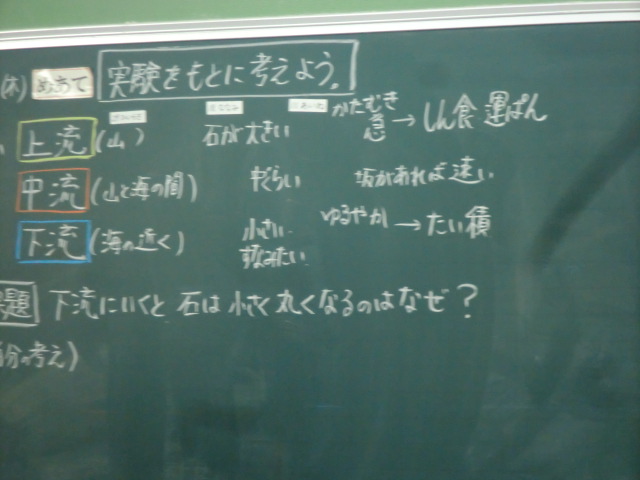 (木) めあて 実験をもとに考えよう。
上流 (山) 石が大きい かたむき 急 → しん食 運ぱん
中流 (山と海の間) 中くらい 坂があれば速い
下流 (海の近く) 小さい すなみたい ゆるやか → たい積
題 下流にいくと 石は小さく丸くなるのはなぜ?
分の考え)